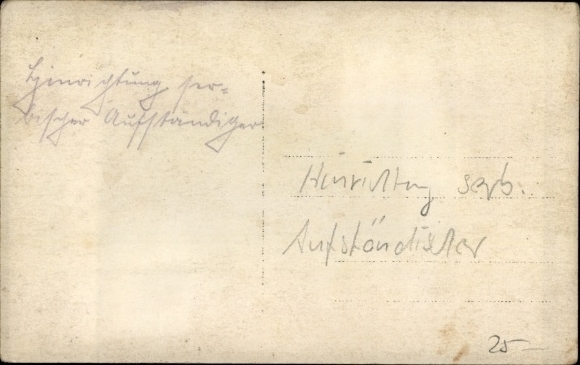 Hinrichtung ser-
bischer Aufständiger
Hinrichtung serb.
Aufständischer
25-